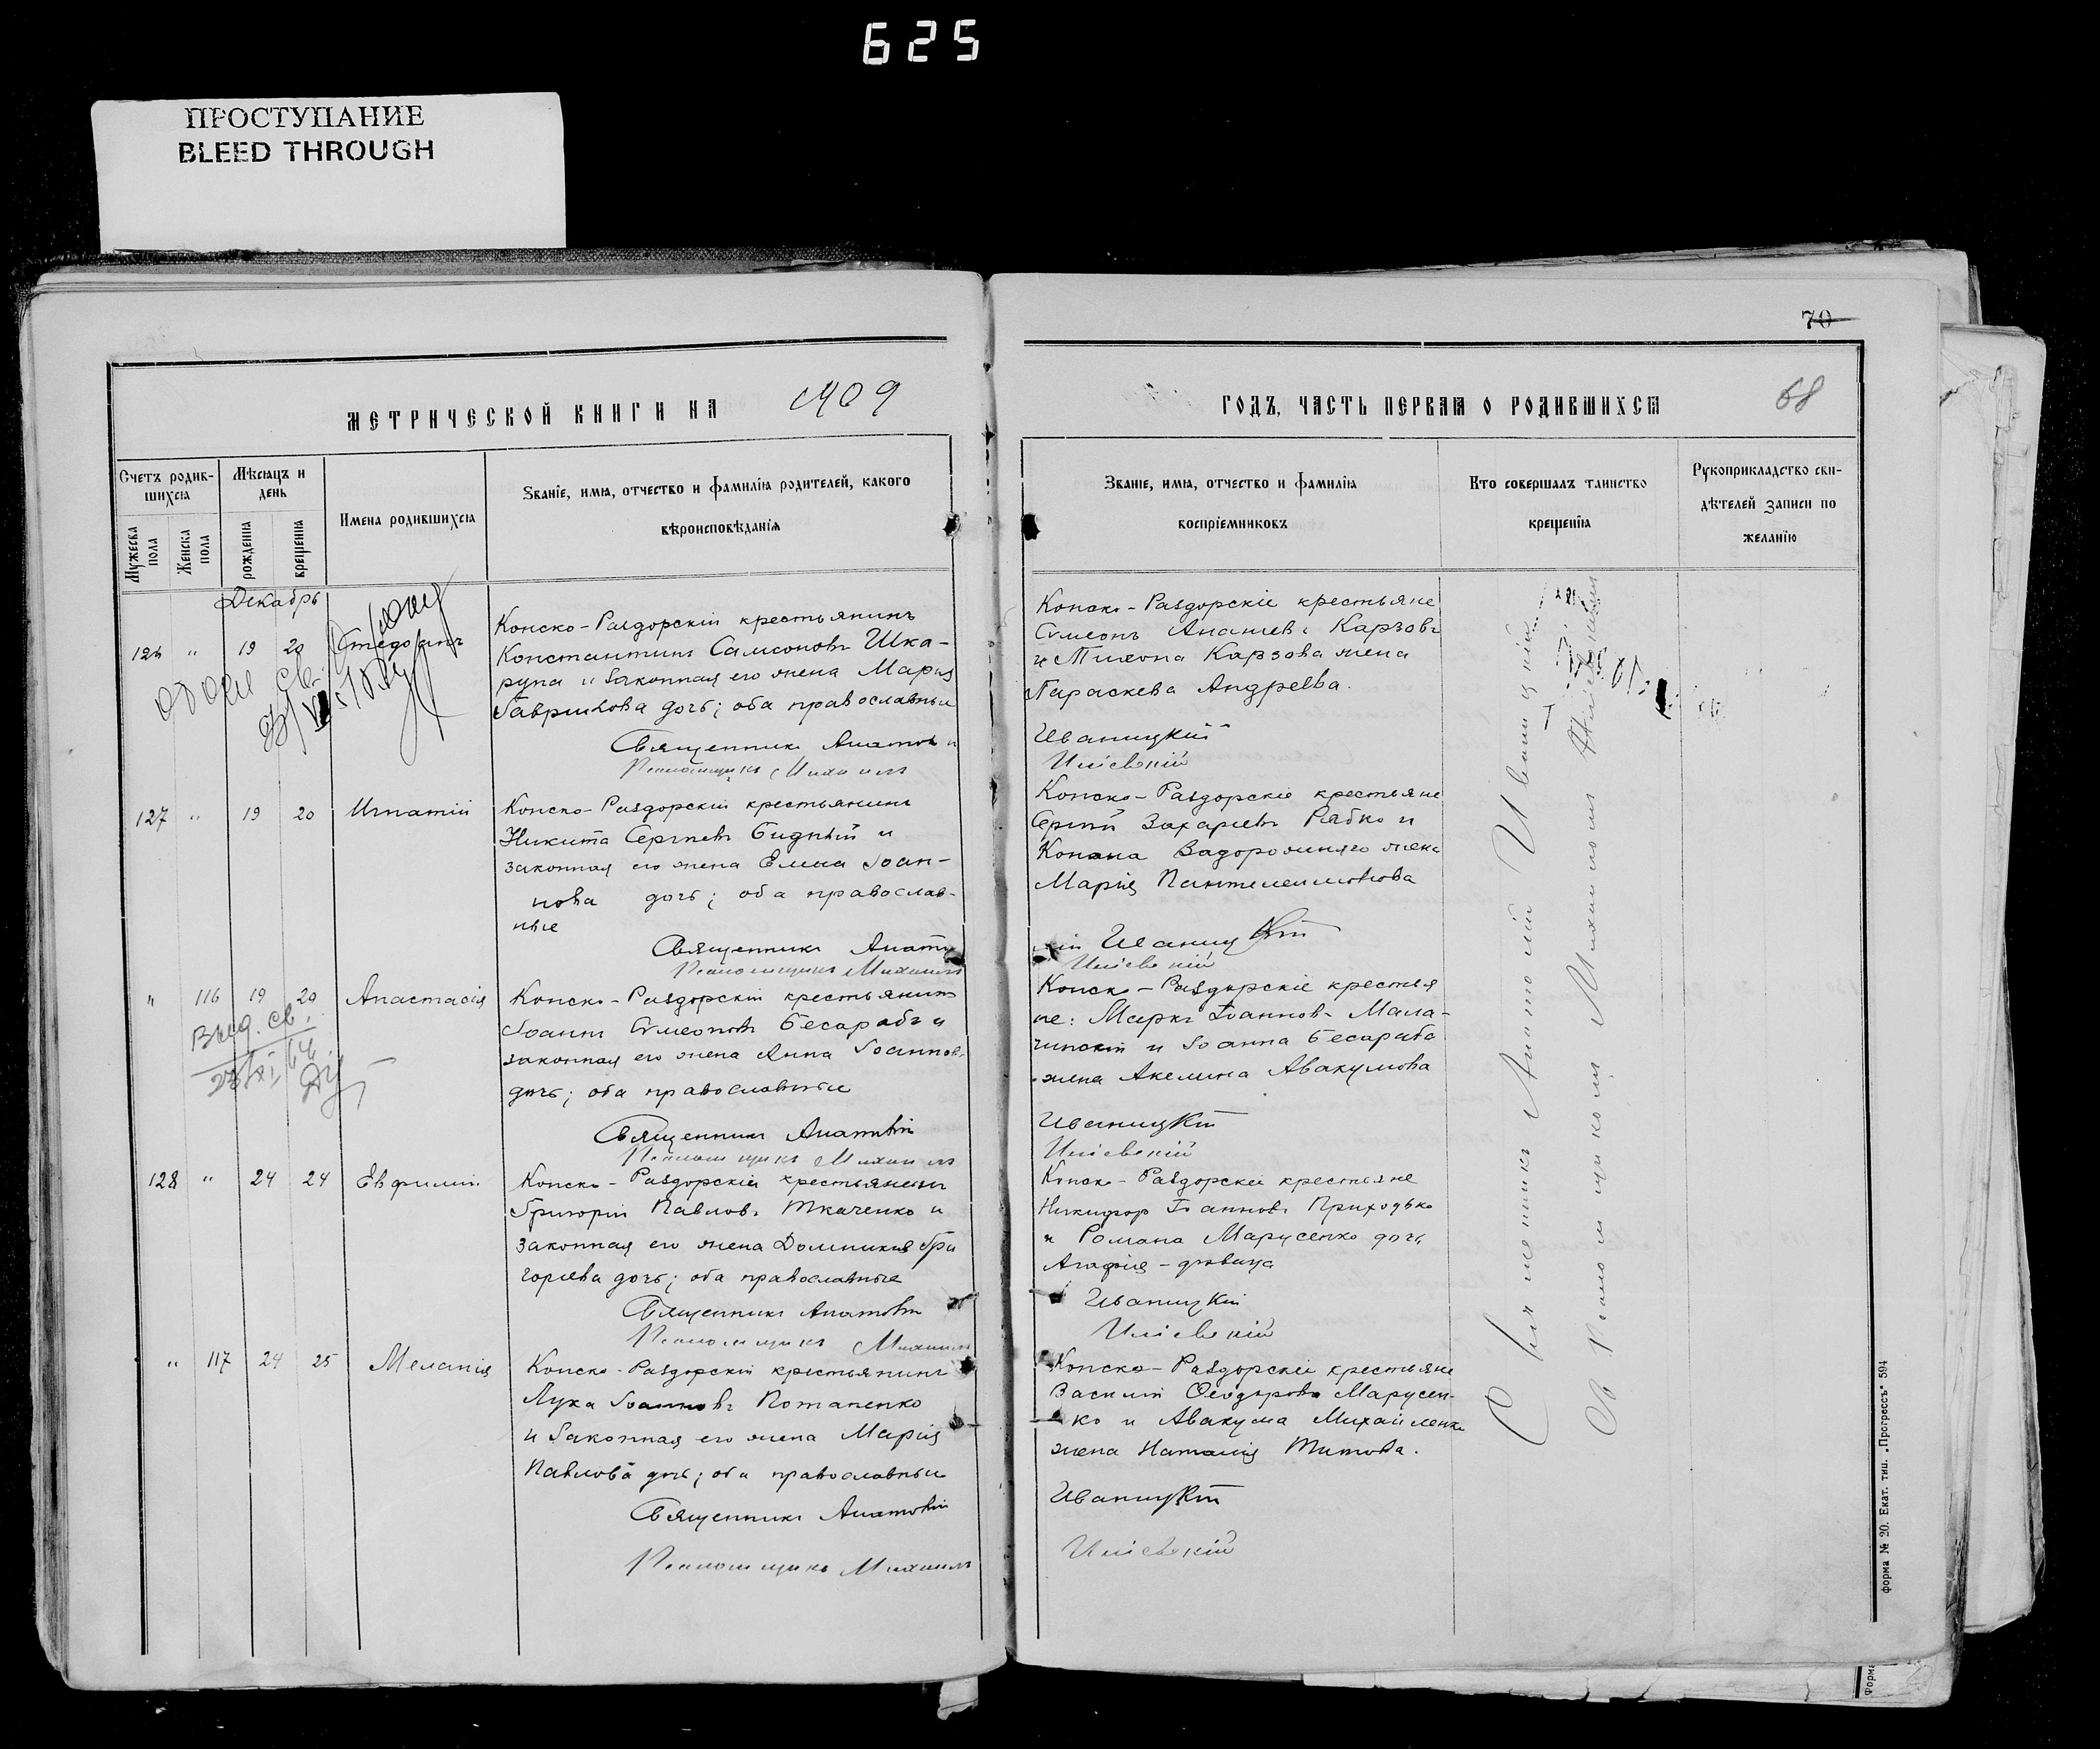 625
ПРОСТУПАНИЕ
BLEED THROUGH
МЕТРИЧЕСКОЙ КНИГИ НА 1909
Счетъ родив-
шихся
Мѣсяцъ и
день
Имена родившихся
Званіе, имя, отчество и фамилія родителей, какого
вѣроисповѣданія
Мужеска
пола
Женска
пола
рожденія
крещенія
Декабрь
126 " 19 20
Конско-Раздорскій крестьянинъ
Константинъ Самсоновъ Шка-
рупа и законная его жена Марія
Гаврилова дочь; оба православные
Священникъ
Псаломщикъ Михаилъ
127 " 19 20 Игнатій
Конско-Раздорскій крестьянинъ
Никита Сергіевъ Бидный и
законная его жена Елена Іоан-
нова дочь; оба православ-
ные
Священникъ
Псаломщикъ Михаилъ
" 116 19 20 Анастасія
Выд. св.
Конско-Раздорскій крестьянинъ
Іоаннъ Симеоновъ Бесарабъ и
законная его жена Анна Іоаннов.
дочь; оба православные
Священникъ Анатолій
Псаломщикъ Михаилъ
128 " 24 24 Евфимій
Конско-Раздорскій крестьянинъ
Григорій Павловъ Ткаченко и
законная его жена Домникія Гри
горіева дочь; оба православные
Священникъ Анатолій
Псаломщикъ Михаилъ
" 117 24 25 Меланія
Конско-Раздорскій крестьянинъ
Лука Іоанновъ Потапенко
и законная его жена Марія
Павлова дочь; оба православные
Священникъ Анатолій
Псаломщикъ Михаилъ
70
ГОДЪ, ЧАСТЬ ПЕРВАЯ О РОДИВШИХСЯ
68
Званіе, имя, отчество и фамилія
воспріемниковъ
Кто совершалъ таинство
крещенія
Рукоприкладство сви-
дѣтелей записи по
желанію
Конско-Раздорскіе крестьяне
Симеонъ Карзовъ
и Карзова жена
Параскева Андреева.
Иваницкій
Конско-Раздорскіе крестьяне
Сергій Захаріевъ Рябко и
Конона Задорожняго жена
Марія Пантелеимонова
Иваницкій
Конско-Раздорскіе крестья
не: Маркъ Іоанновъ Мала-
и Іоанна Бесараба
жена Акелина Авакумова
Иваницкій
Конско-Раздорскіе крестьяне
Никифор Іоанновъ Приходько
и Романа Марусенко дочь
Агафія - дѣвица
Иваницкій
Конско-Раздорскіе крестьяне
Василій Ѳеодоровъ Марусен-
ко и Авакума Михайленка
жена Наталія Титова.
Иваницкій
Священникъ Анатолій Иваницкій
Съ Псаломщикомъ Михаиломъ
Форма № 20. Екат. тип. „Прогрессъ" 594
Форма